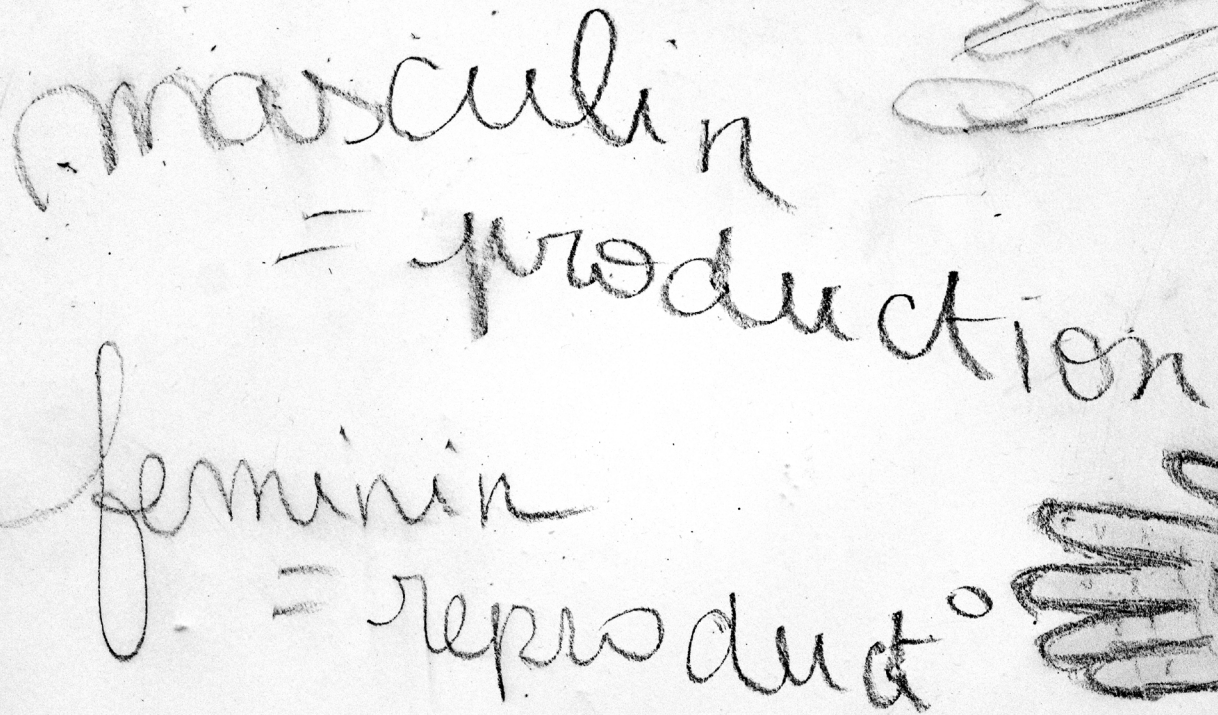 masculin
= production
feminin
= reproduct°